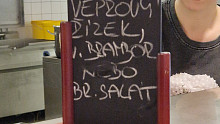 VEPŘOVÝ
ŘÍZEK,
V. BRAMBOR
NEBO
BR. SALÁT